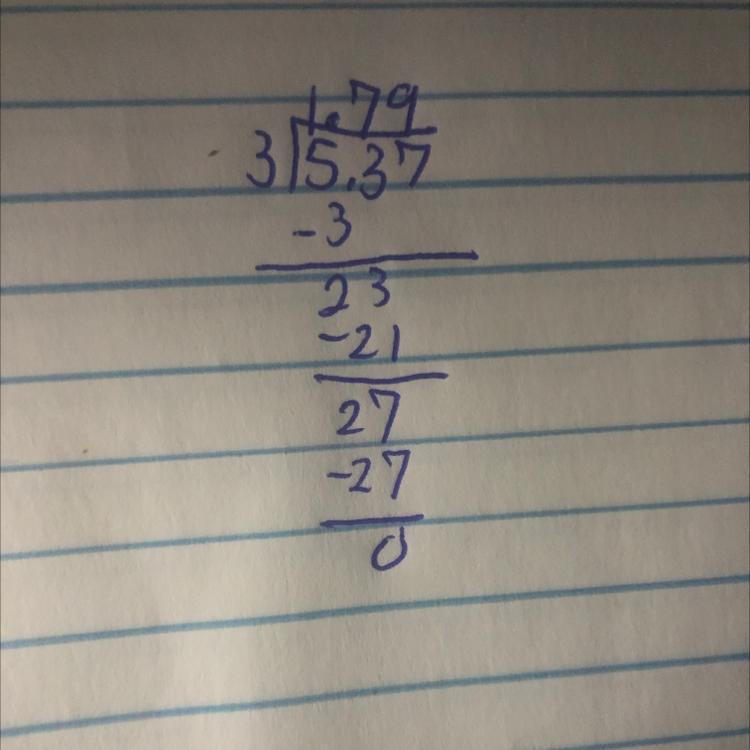 1.79
3 5.37
-3
23
-21
27
-27
0